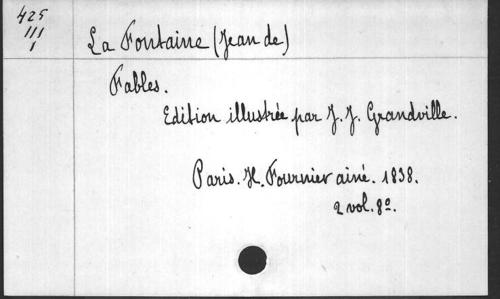 425
III
1
La Fontaine (Jean de)
Fables.
Edition illustrée par J. J. Grandville.
Paris. H. Fournier ainé. 1838.
2 vol. 8º.